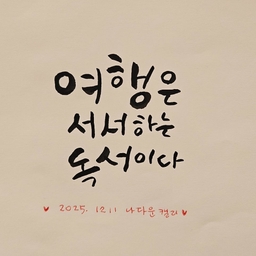 여행은
서서하는
독서이다
♥ 2025. 12.11 나다운캘리 ♥